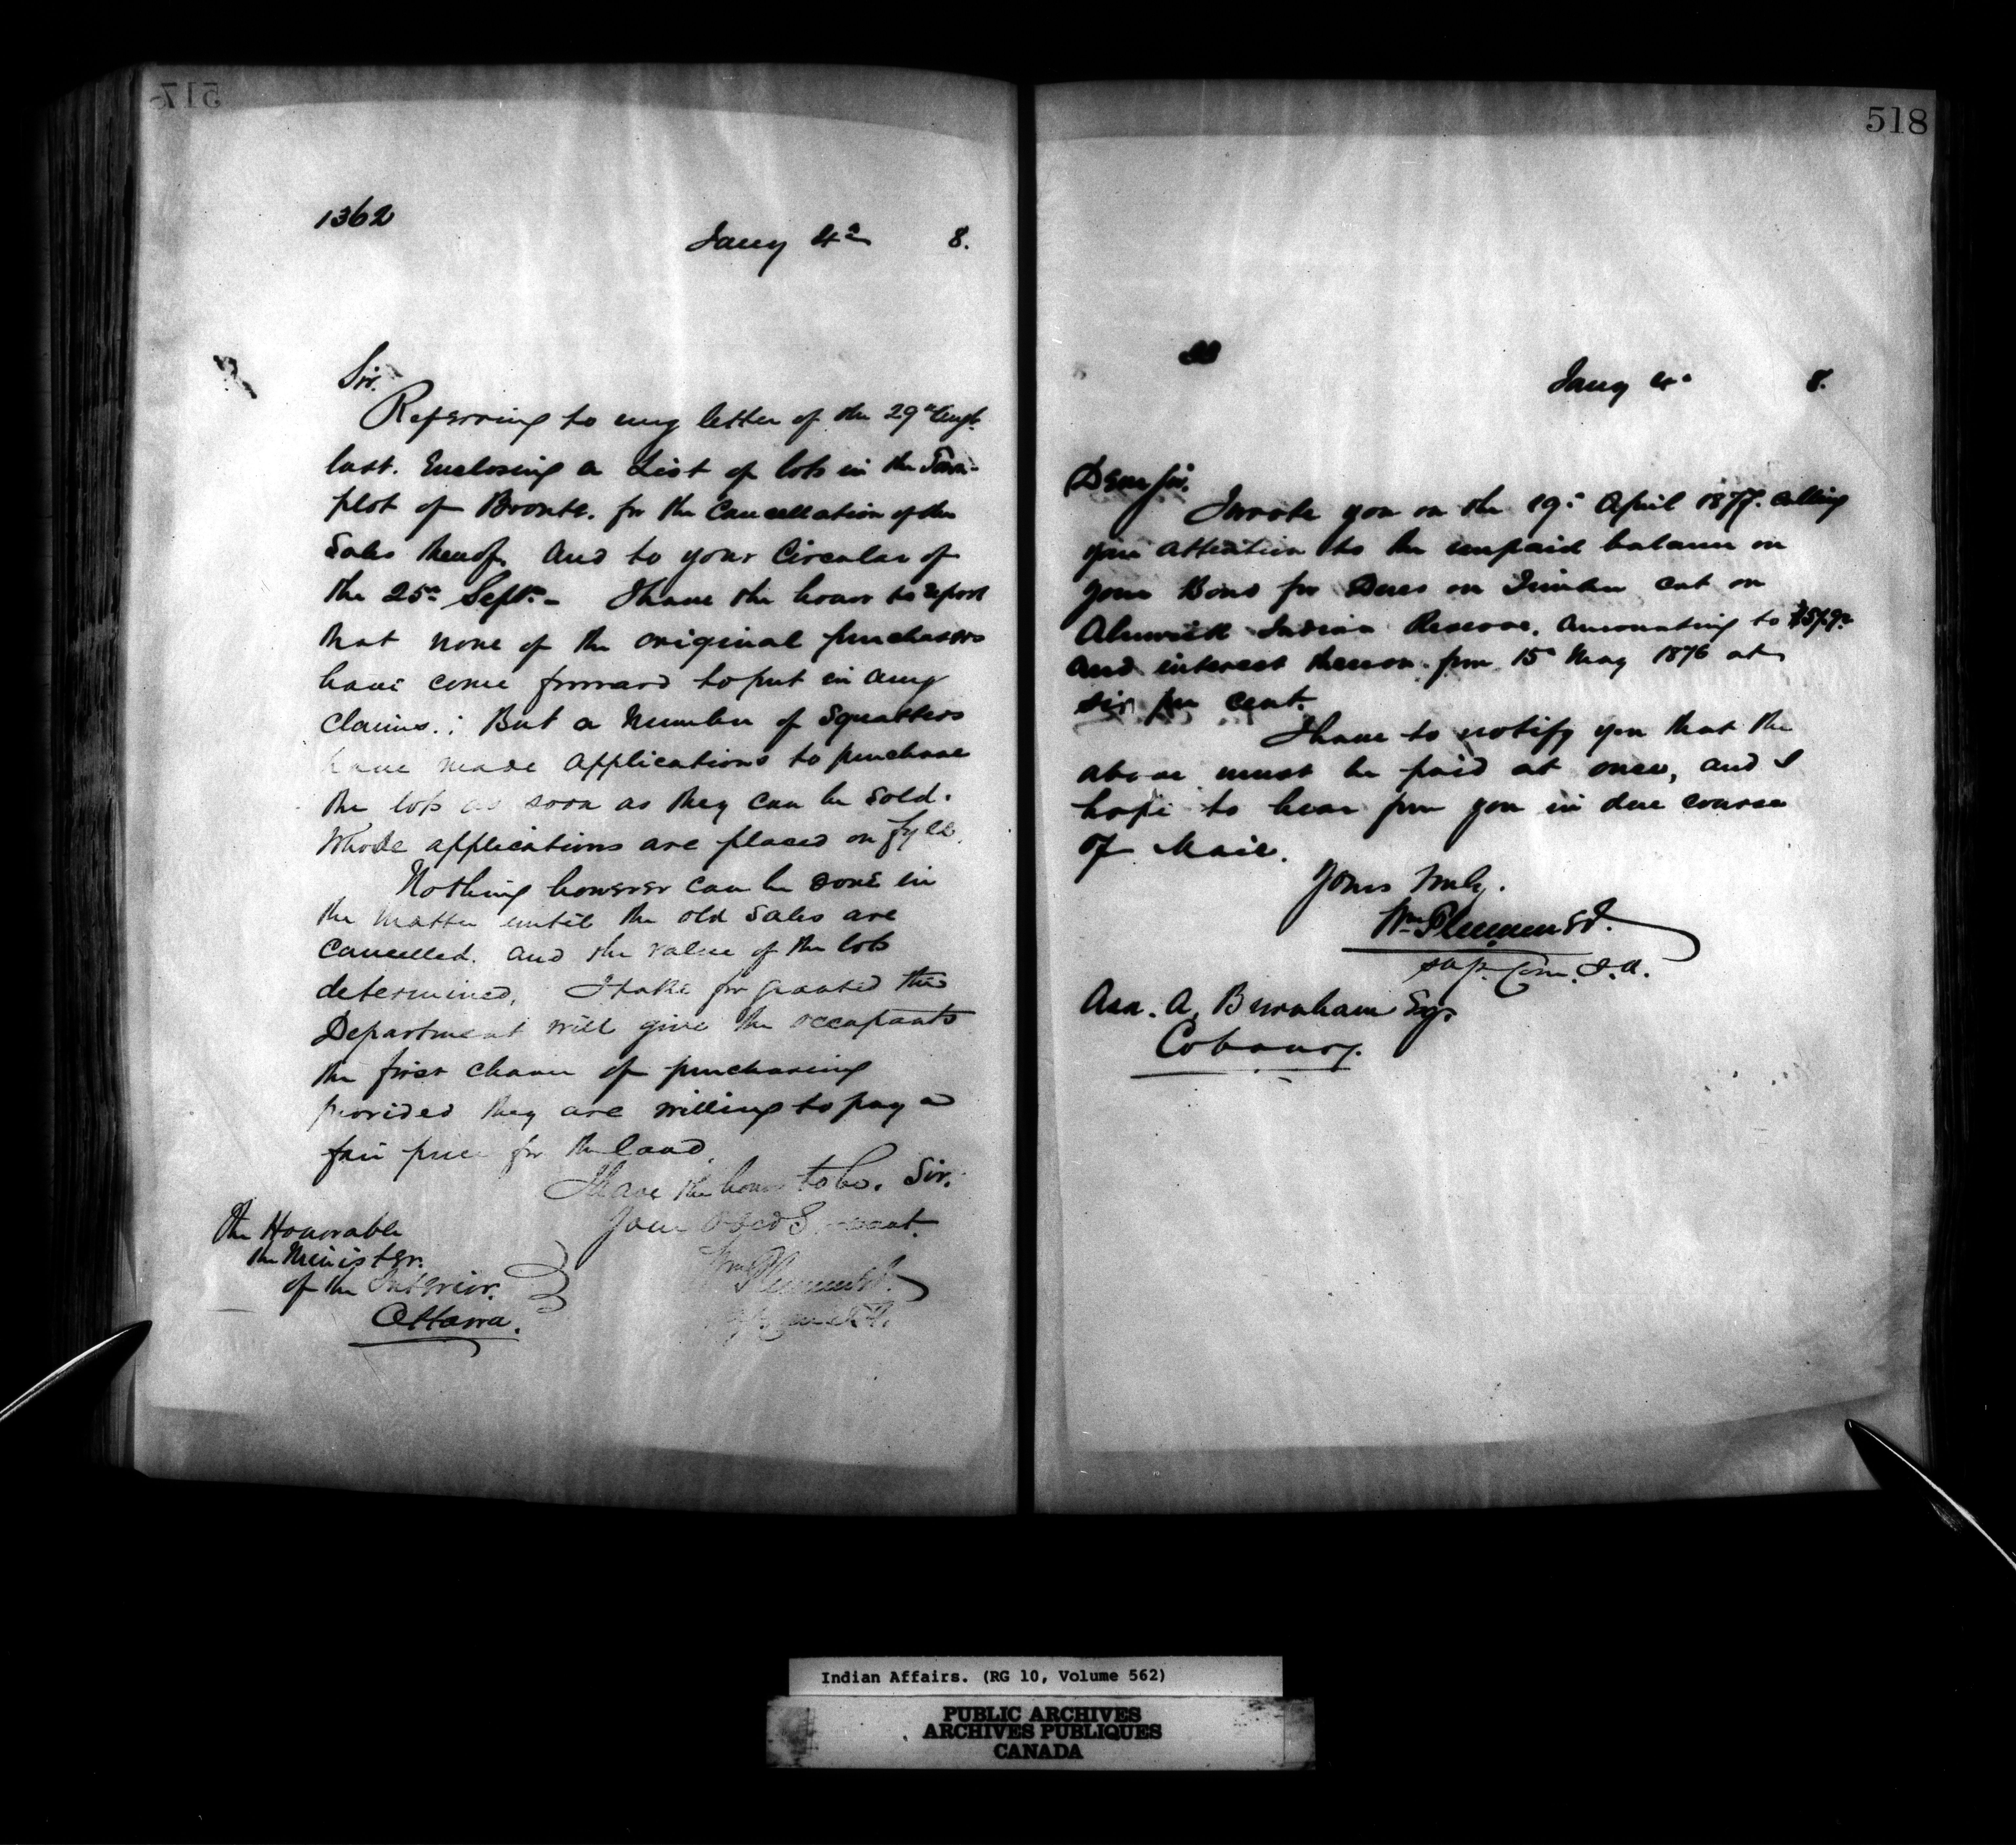 517
1362
Jany 4th 8.
Sir.
Referring to my letter of the 29th Augt.
last. Enclosing a List of lots in the Town-
plot of Bronte. for the Cancellation of the
Sales thereof, and to your Circular of
the 25th Septr. - I have the honor to report
that none of the original purchasers
have come forward to put in any
Claims. : But a Number of Squatters
have made applications to purchase
the lots as soon as they can be Sold.
Whose applications are placed on fyle.
Nothing however can be done in
the matter until the old Sales are
Cancelled. and the value of the lots
determined. I take for granted the
Department will give the occupants
the first chance of purchasing
provided they are willing to pay a
fair price for the land.
I have the honor to be. Sir.
Your Obed Servant.
Wm Plummer
The Honorable
the Minister.
of the Interior.
Ottawa.
518
Jany 4th 8.
Dear Sir.
I wrote you on the 19th April 1877. calling
your attention to the unpaid balance on
your Bond for Dues on Timber cut on
Alnwick Indian Reserve. amounting to
and interest thereon from 15th May 1876 at
six per cent.
I have to notify you that the
above must be paid at once, and I
hope to hear from you in due course
of Mail.
Yours truly.
Wm Plummer
Sup. Com. I. A.
Asa. A. Burnham Esqr
Cobourg.
Indian Affairs. (RG 10, Volume 562)
PUBLIC ARCHIVES
ARCHIVES PUBLIQUES
CANADA